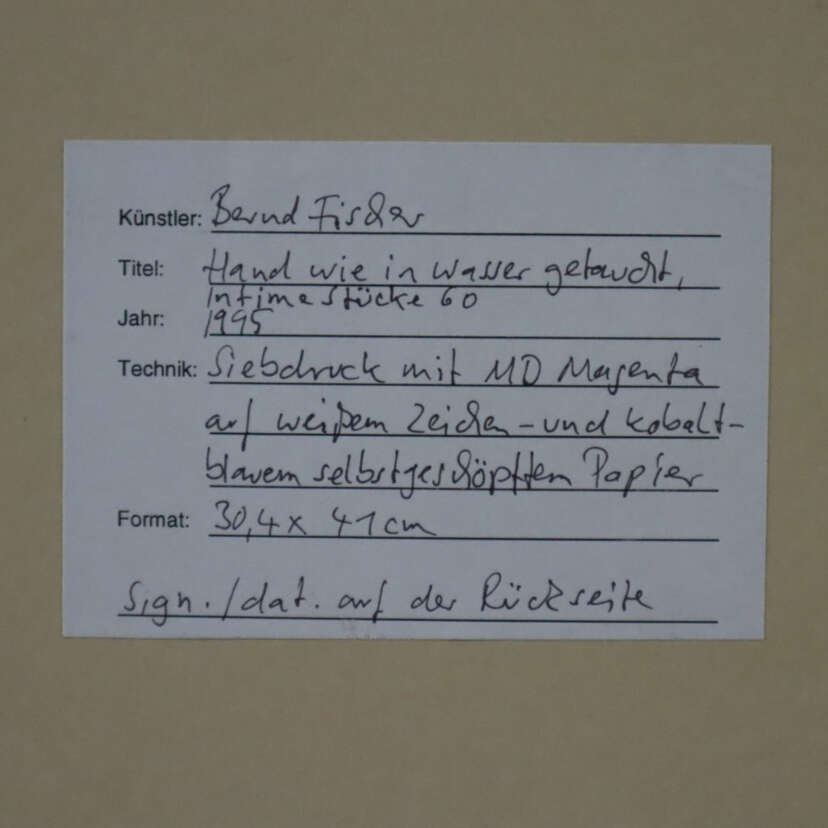 Künstler: Bernd Fischer
Titel: Hand wie in Wasser getaucht,
Intime Stücke 60
Jahr: 1995
Technik: Siebdruck mit MD Magenta
auf weißem Zeichen- und kobalt-
blauem selbstgeschöpftem Papier
Format: 30,4 x 41 cm
Sign./dat. auf der Rückseite